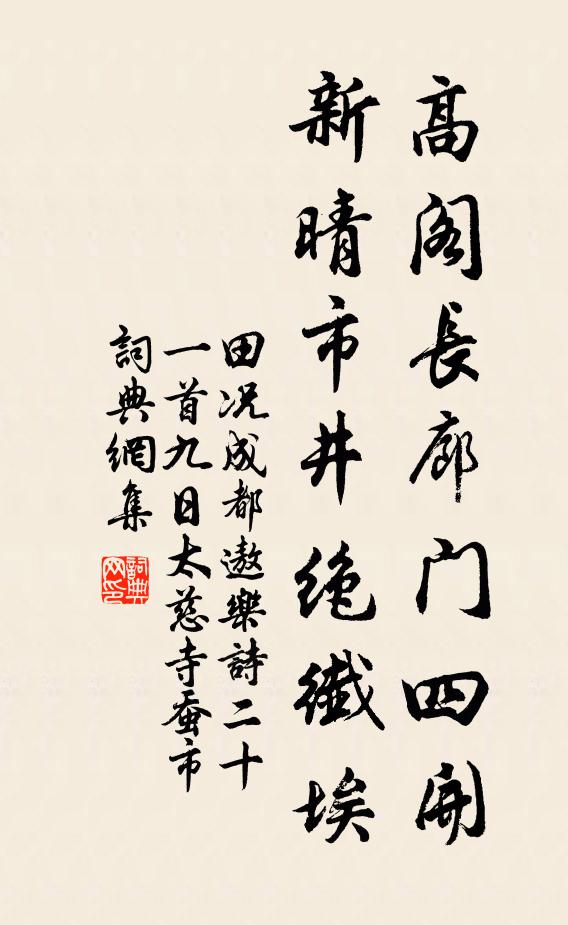 高阁長廊门四開
新晴市井绝纖埃
田况成都遨樂詩二十
一首九日太慈寺蚕市
詞典網集
詞典
网印